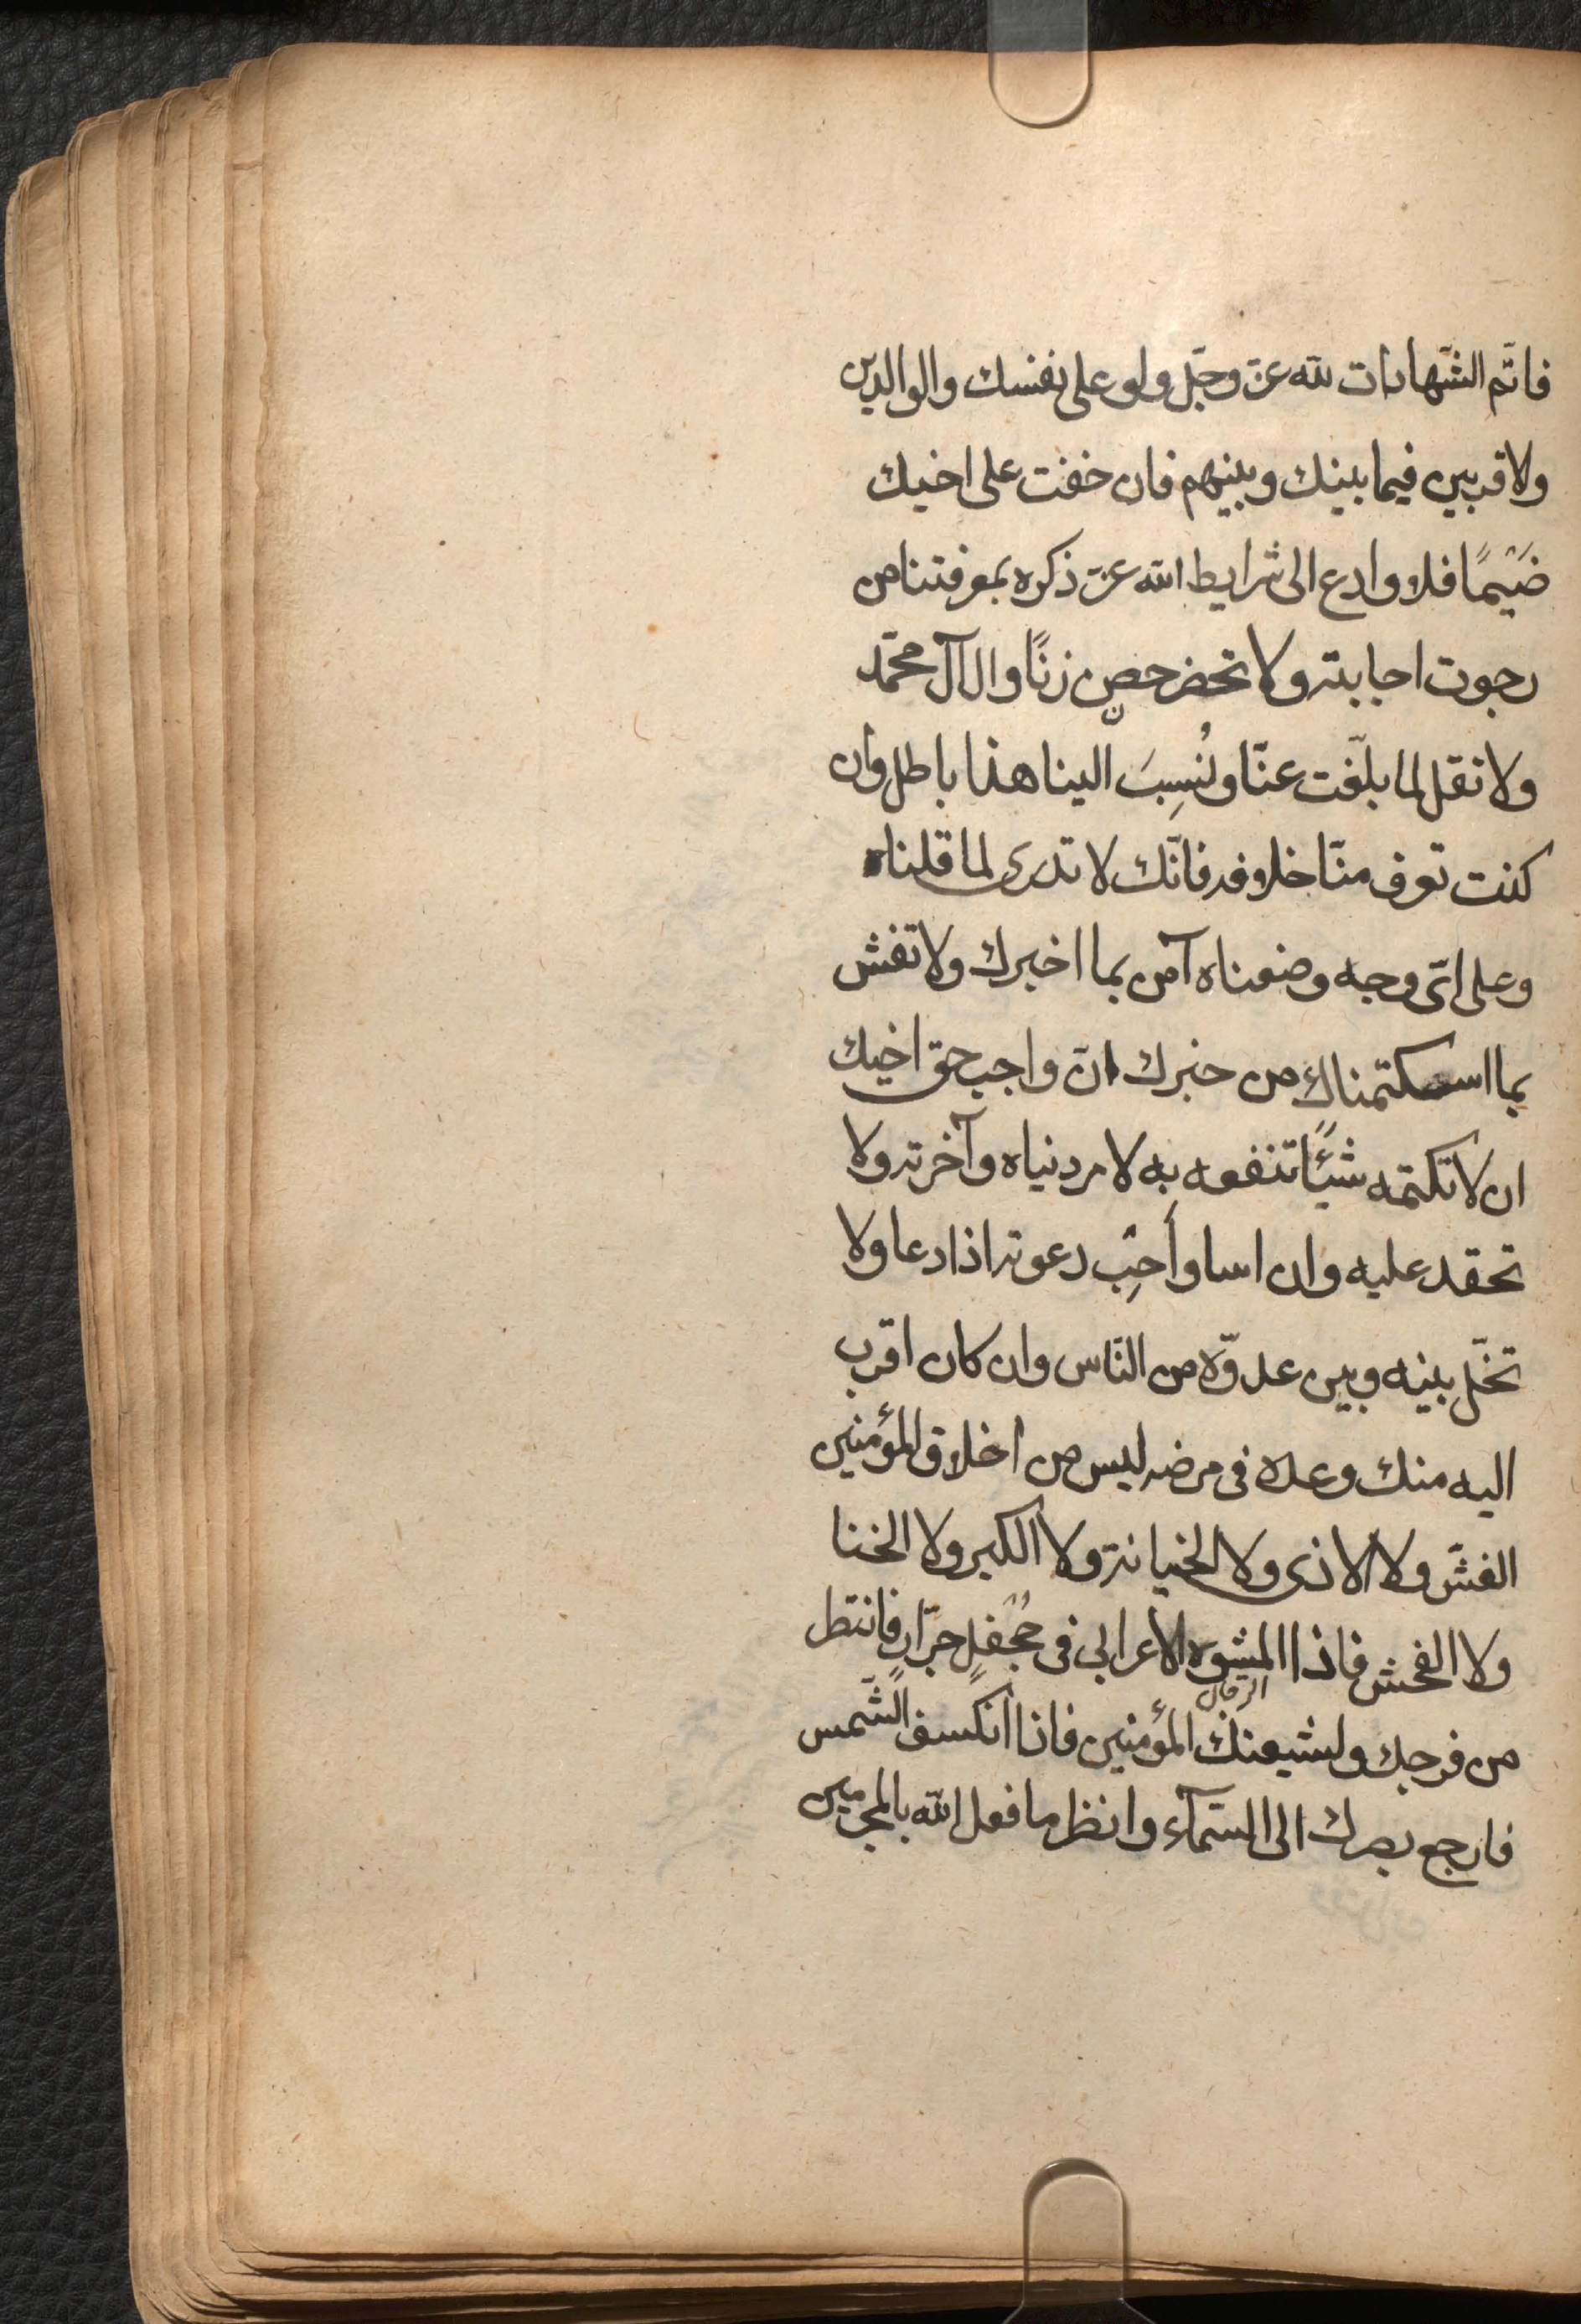 فاتم الشّهادات للّه عزّ وجلّ ولو على نفسك والوالدين
ولاقربين فيما بينك وبينهم فان خفت على اخيك
ضَيْمًا فلا وادع الى شرايط اللّه عزّ ذكره بمعرفتنا من
رجوت اجابته ولا تحضر حصن زنًا وال آل محمّد
ولا تقل لما بلّغت عنّا ونُسِبَ الينا هذا باطل وان
كنت تعرف منّا خلافه فانّك لا تدرى لما قلناه
وعلى اىّ وجه وضعناه آمن بما اخبرك ولا تفش
بما استكتمناك من خبرك انّ واجب حق اخيك
ان لا تكتمه شيئًا تنفعه به لامر دنياه وآخرته ولا
تحقد عليه وان اسا وأجِبْ دعوته اذا دعا ولا
تخلّ بينه وبين عدوّه من النّاس وان كان اقرب
اليه منك وعده فى مرضه ليس من اخلاق المؤمنين
الغشّ ولا الاذى ولا الخيانة ولا الكبر ولا الخنا
ولا الفحش فاذا المشوه الاعرابى فى جُحْفلٍ جرّارٍ فانتظر
من فرجك ولشيعتك المؤمنين فاذا انكسف الشّمس
فارجع بصرك الى السّمآء وانظر ما فعل اللّه بالمجرمين